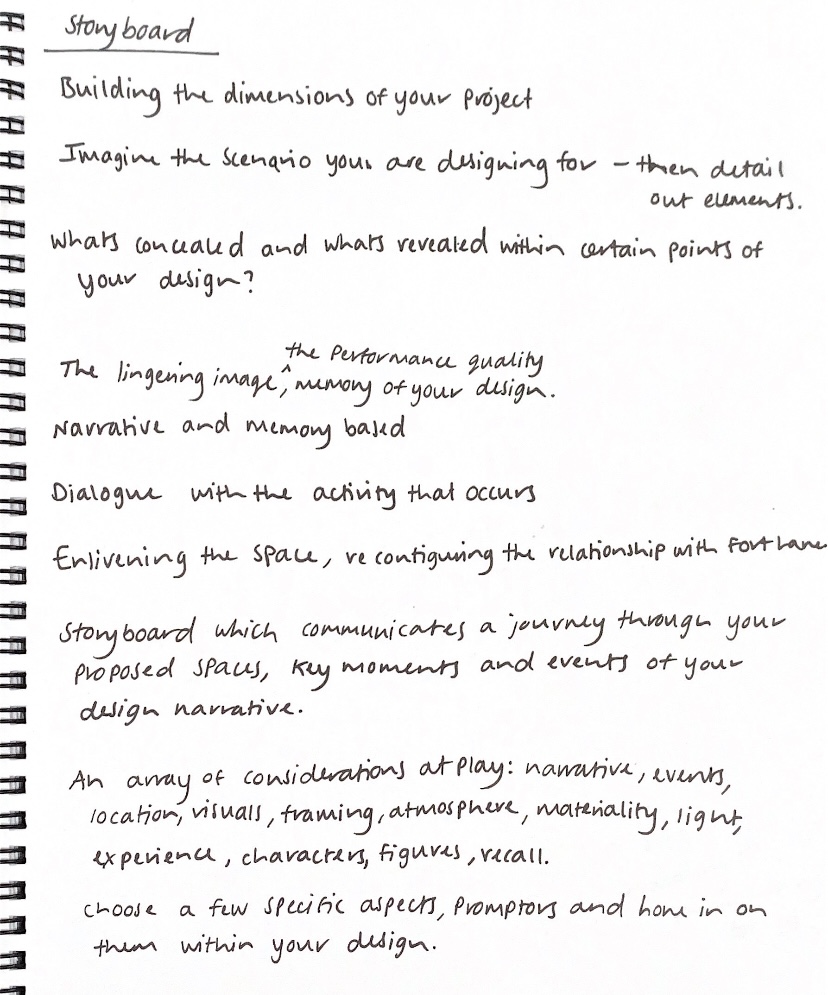 Storyboard
Building the dimensions of your project
Imagine the scenario your are designing for – then detail
out elements.
Whats concealed and whats revealed within certain points of
your design?
the Performance quality
The lingering image, ^ memory of your design.
Narrative and memory based
Dialogue with the activity that occurs
Enlivening the space, re configuring the relationship with Fort Lane
Storyboard which communicates a journey through your
proposed spaces, key moments and events of your
design narrative.
An array of considerations at play: narrative, events,
location, visuals, framing, atmosphere, materiality, light,
experience, characters, figures, recall.
choose a few specific aspects, promptors and hone in on
them within your design.